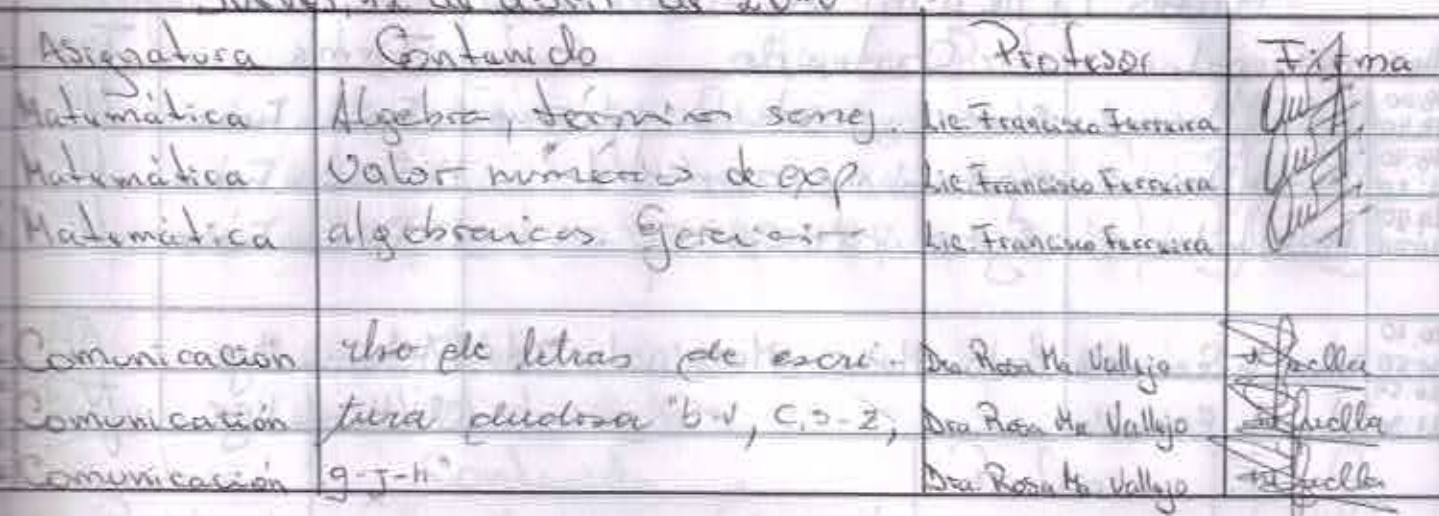 de abril de
Asignatura Contenido Profesor Firma
Matemática Algebra, términos semej. Lic. Francisco Ferreira
Matemática Valor numérico de exp. Lic. Francisco Ferreira
Matemática algebraicas Ejercicio Lic. Francisco Ferreira
Comunicación Uso de letras de escri- Dra. Rosa Ma Vallejo
Comunicación tura dudosa "b-v, c,s-z, Dra. Rosa Ma Vallejo
Comunicación g-j-h" Dra. Rosa Ma Vallejo